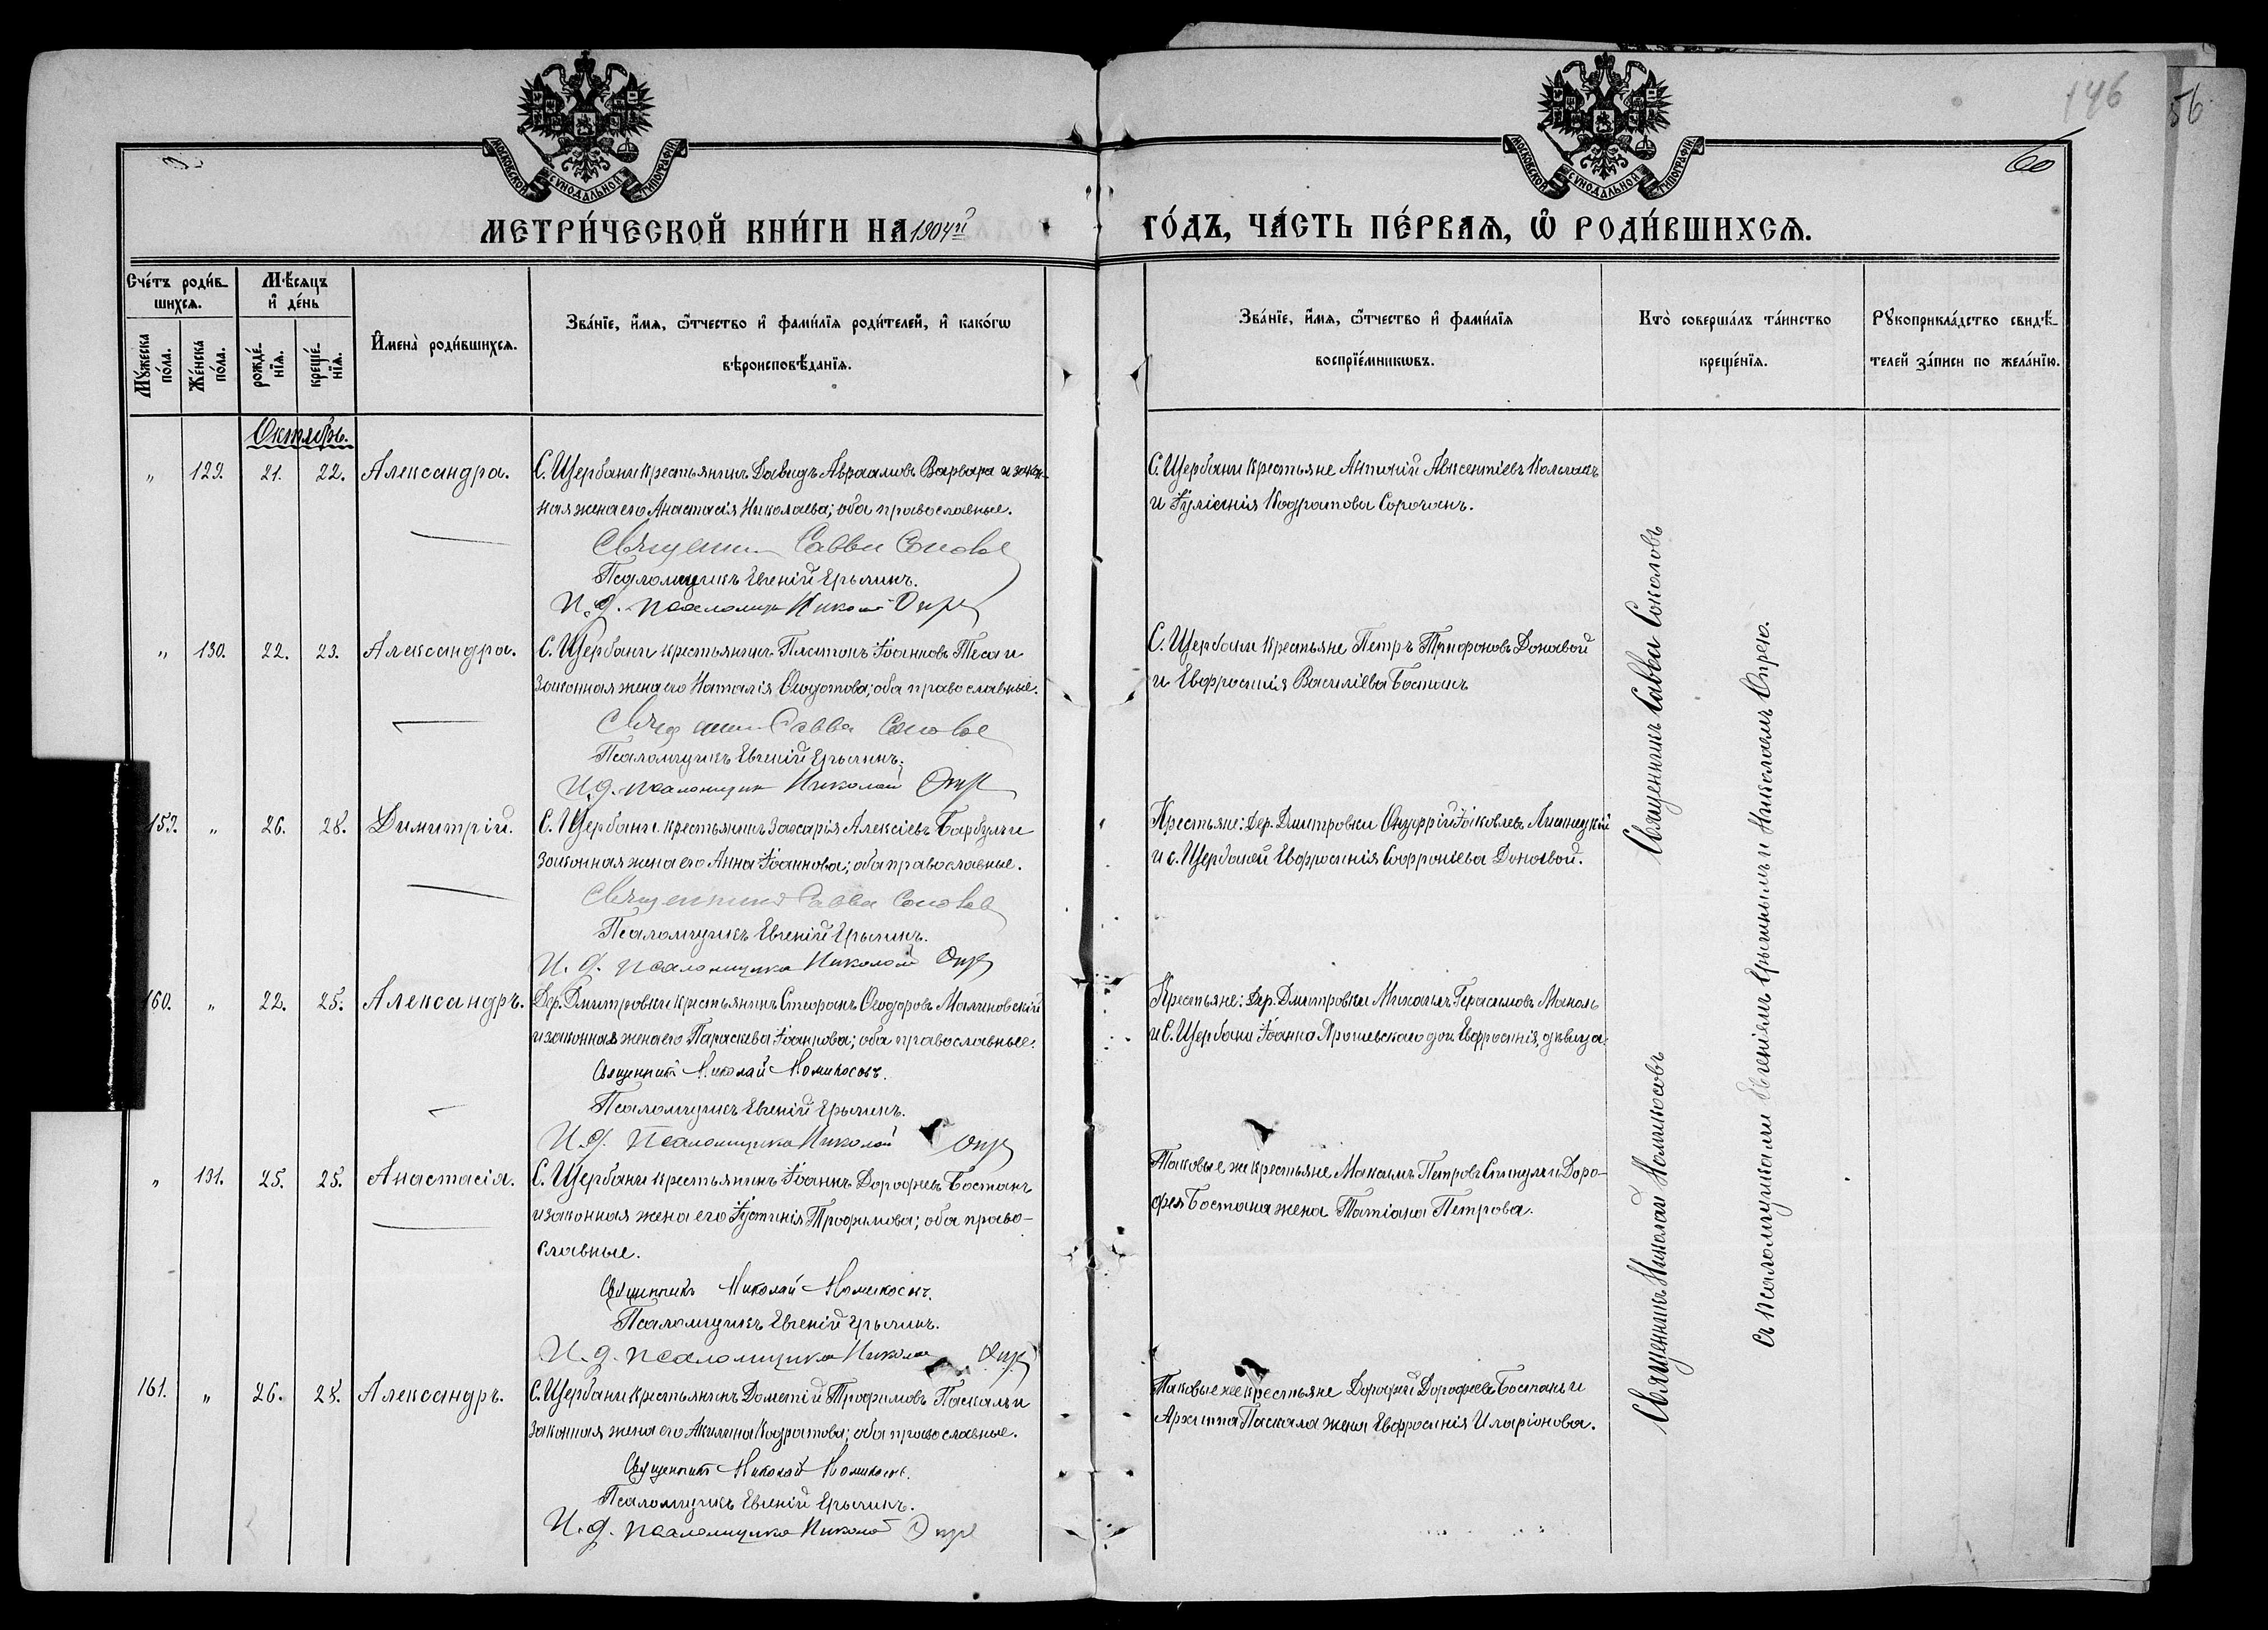 146
56
60
МОСКОВСКОЙ СѴНОДАЛЬНОЙ ТИПОГРАФІИ
МОСКОВСКОЙ СѴНОДАЛЬНОЙ ТИПОГРАФІИ
МЕТРИ́ЧЕСКОЙ КНИ́ГИ НА 1904й ГО́ДЪ, ЧА́СТЬ ПЕ́РВАѦ, Ѡ҆ РОДИ́ВШИХСѦ.
Сче́тъ роди́в-
шихсѧ.
Мѣ́сяцъ
и҆ де́нь
Мꙋ́жеска
по́ла.
Же́нска
по́ла.
рожде́-
нїѧ.
креще́-
нїѧ.
И҆мена̀ роди́вшихсѧ.
Зва́нїе, и҆́мѧ, ѻ҆́тчество и҆ фами́лїѧ роди́телей, и҆ како́гѡ
вѣроисповѣ́данїѧ.
Зва́нїе, и҆́мѧ, ѻ҆́тчество и҆ фами́лїѧ
воспрїе́мникѡвъ.
Кто̀ соверша́лъ та́инство
креще́нїѧ.
Рꙋкоприкла́дство свидѣ́-
телей за́писи по жела́нїю.
Октябрь.
" 129. 21. 22. Александра. С. Щербани крестьянинъ Давидъ Авраамовъ Варвара и закон-
ная жена его Анастасія Николаева; оба православные.
Священникъ Савва Соколовъ
Псаломщикъ Евгеній Ерыгинъ.
И. д. псаломщика Николай Опря
С. Щербани крестьяне Антоній Авксентіевъ
и Іуліанія Кодратова Сорочанъ.
" 130. 22. 23. Александра. С. Щербани крестьянинъ Платонъ Іоанновъ Теса и
законная жена его Наталія Ѳеодотова; оба православные.
Священникъ Савва Соколовъ
Псаломщикъ Евгеній Ерыгинъ.
И. д. псаломщика Николай Опря
С. Щербани крестьяне Петръ Трифоновъ Доновой
и Евфросинія Василіева Бостанъ
159. " 26. 28. Димитрій. С. Щербани крестьянинъ Захарія Алексіевъ Барбулъ и
законная жена его Анна Іоаннова; оба православные.
Священникъ Савва Соколовъ
Псаломщикъ Евгеній Ерыгинъ.
И. д. псаломщика Николай Опря
Крестьяне: Дер. Дмитровки Онуфрій Іаковлевъ
и с. Щербаней Евфросинія Софроніева Доновой.
160. " 22. 25. Александръ. Дер. Дмитровки крестьянинъ Стефанъ Ѳеодоровъ Малиновскій
и законная жена его Параскева Іоаннова; оба православные.
Священникъ Николай Номикосовъ.
Псаломщикъ Евгеній Ерыгинъ.
И. д. псаломщика Николай Опря
Крестьяне: Дер. Дмитровки Михаилъ Герасимовъ
и С. Щербани Іоанна дочь Евфросинія, дѣвица.
" 131. 25. 25. Анастасія. С. Щербани крестьянинъ Іоаннъ Дорофеевъ Бостанъ
и законная жена его Іустинія Трофимова; оба право-
славные.
Священникъ Николай Номикосовъ.
Псаломщикъ Евгеній Ерыгинъ.
И. д. псаломщика Николай Опря
Таковые же крестьяне Максимъ Петровъ и Доро-
фея Бостана жена Татіана Петрова.
161. " 26. 28. Александръ. С. Щербани крестьянинъ Дометій Трофимовъ Паскалъ и
законная жена его Акилина Кодратова; оба православные.
Священникъ Николай Номикосовъ.
Псаломщикъ Евгеній Ерыгинъ.
И. д. псаломщика Николай Опря
Таковые же крестьяне Дорофей Дорофеевъ Бостанъ и
Архиппа Паскала жена Евфросинія Иларіонова.
Священникъ Савва Соколовъ
Священникъ Николай Номикосовъ
съ псаломщиками Евгеніемъ Ерыгинымъ и Николаемъ Опрею.